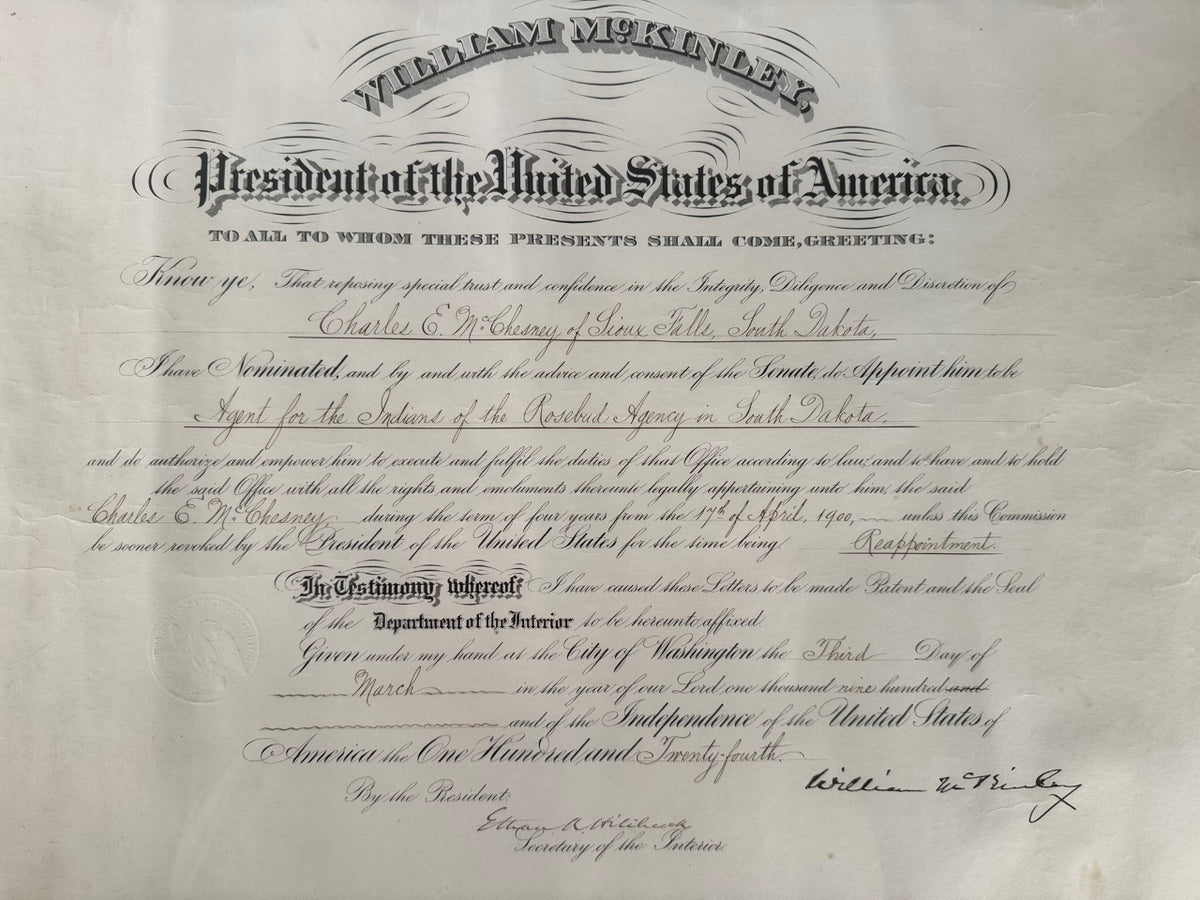 WILLIAM McKINLEY,
President of the United States of America.
TO ALL TO WHOM THESE PRESENTS SHALL COME, GREETING:
Know ye, That reposing special trust and confidence in the Integrity, Diligence and Discretion of
Charles E. McChesney of Sioux Falls, South Dakota,
I have Nominated, and by and with the advice and consent of the Senate, do Appoint him to be
Agent for the Indians of the Rosebud Agency in South Dakota,
and do authorize and empower him to execute and fulfil the duties of that Office according to law; and to have and to hold
the said Office with all the rights and emoluments thereunto legally appertaining unto him, the said
Charles E. McChesney, during the term of four years from the 17th of April, 1900, unless this Commission
be sooner revoked by the President of the United States for the time being. Reappointment.
In Testimony whereof I have caused these Letters to be made Patent and the Seal
of the Department of the Interior to be hereunto affixed.
Given under my hand at the City of Washington the Third Day of
March in the year of our Lord one thousand nine hundred and
and of the Independence of the United States of
America the One Hundred and Twenty-fourth.
William McKinley
By the President:
Ethan A. Hitchcock
Secretary of the Interior.